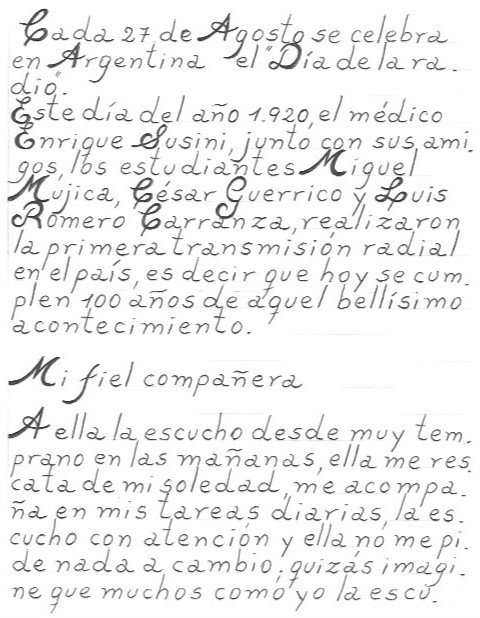 Cada 27 de Agosto se celebra
en Argentina el "Día de la ra.
dio".
Este día del año 1.920, el médico
Enrique Susini, junto con sus ami.
gos, los estudiantes Miguel
Mujica, César Guerrico y Luis
Romero Carranza, realizaron
la primera transmisión radial
en el país, es decir que hoy se cum.
plen 100 años de aquel bellísimo
acontecimiento.
Mi fiel compañera
A ella la escucho desde muy tem.
prano en las mañanas, ella me res
cata de mi soledad, me acompa.
ña en mis tareas diarias, la es.
cucho con atención y ella no me pi.
de nada a cambio; quizás imagi.
ne que muchos como yo la escu.